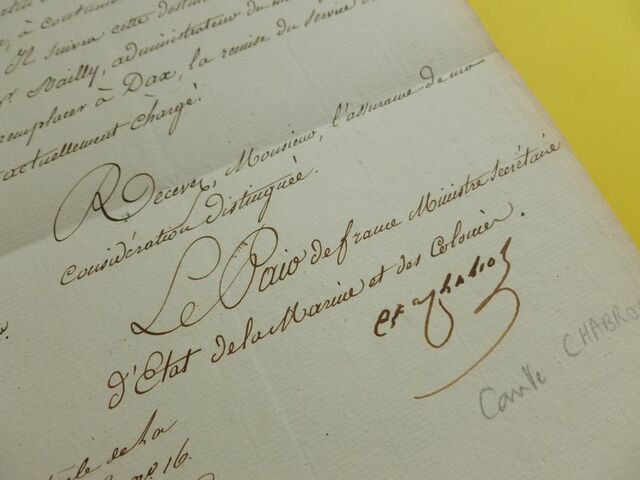 à continu
Il suivra cette desti
Mr. Bailly, administrateur du m
remplacer à Dax, la remise du service d
actuellement chargé.
Recevez, Monsieur, l'assurance de ma
considération distinguée.
Le Pair de france Ministre Secrétaire
d'Etat de la Marine et des Colonies.
Comte CHABRO
de la
no. 16.